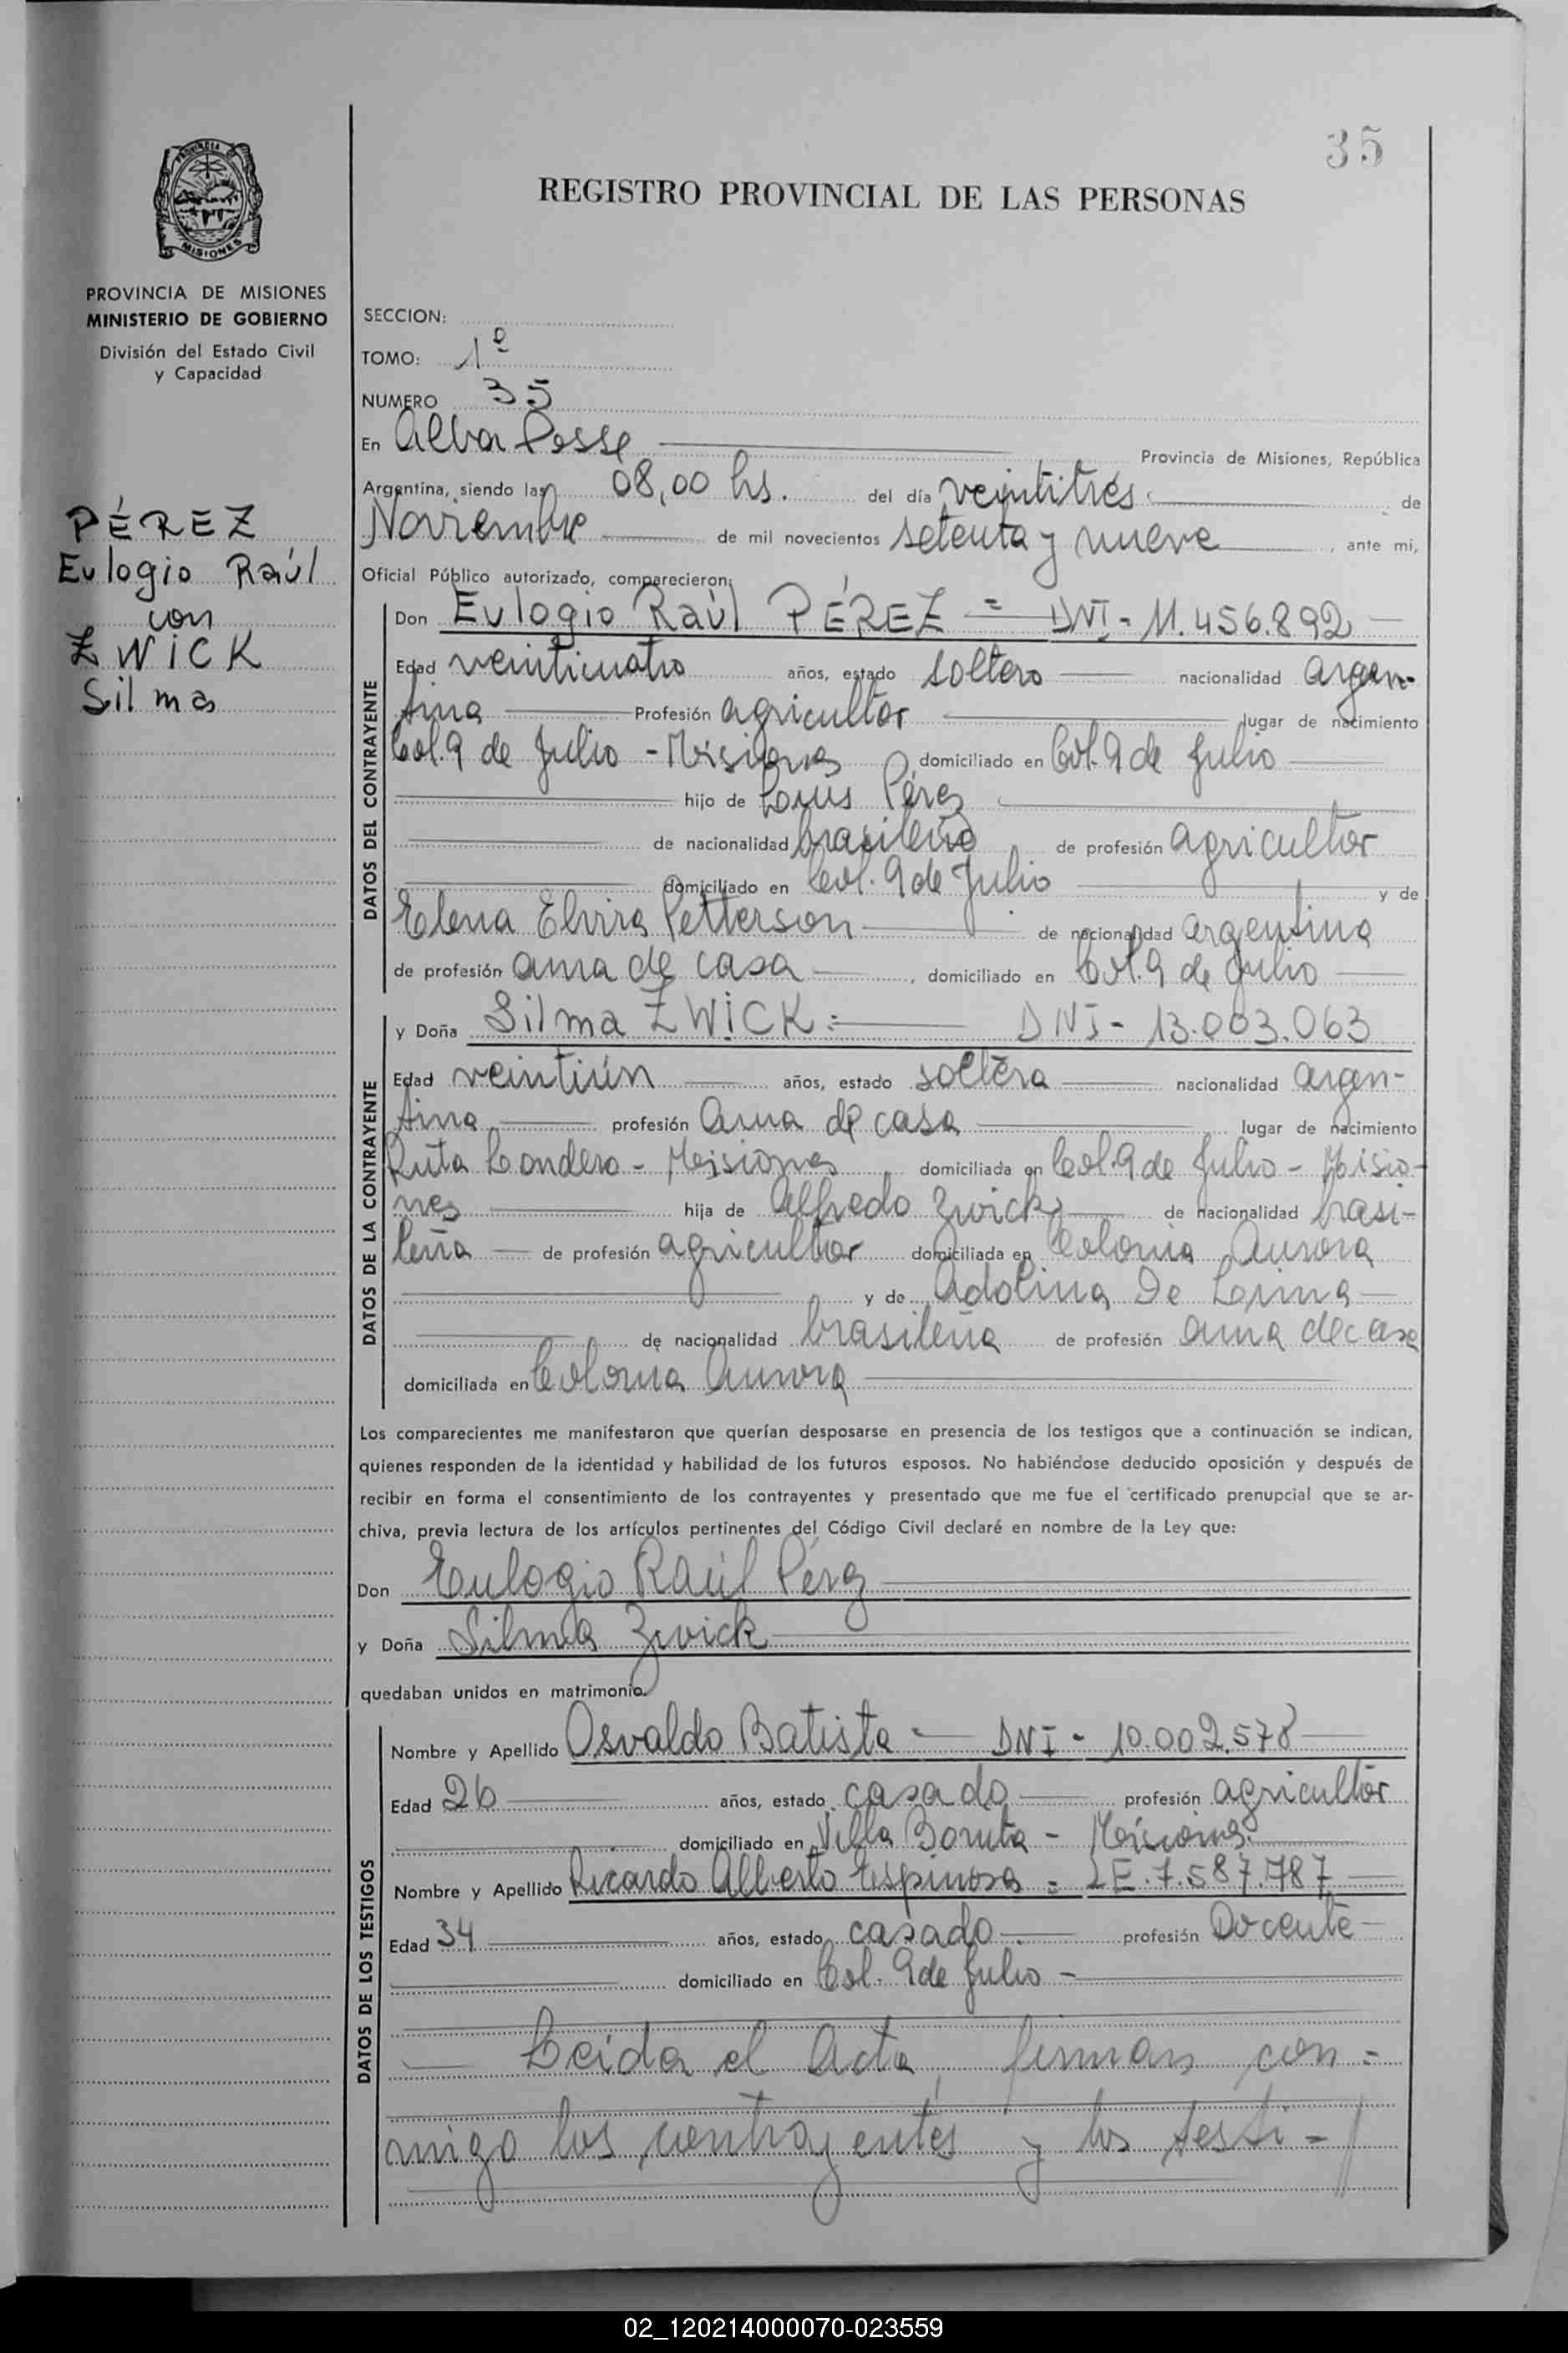 35
REGISTRO PROVINCIAL DE LAS PERSONAS
PROVINCIA DE MISIONES
MINISTERIO DE GOBIERNO
División del Estado Civil
y Capacidad
PÉREZ
Eulogio Raúl
con
ZWICK
Silma
SECCION:
TOMO: 1º
NUMERO 35
En Alba Posse Provincia de Misiones, República
Argentina, siendo las 08,00 hs. del día veintitrés de
Noviembre de mil novecientos setenta y nueve, ante mi,
Oficial Público autorizado, comparecieron:
DATOS DEL CONTRAYENTE
Don Eulogio Raúl PÉREZ = DNI - 11.456.892
Edad veinticuatro años, estado soltero nacionalidad argen-
tina Profesión agricultor lugar de nacimiento
Col. 9 de Julio - Misiones domiciliado en Col. 9 de Julio
hijo de Pérez
de nacionalidad brasileño de profesión agricultor
domiciliado en Col. 9 de Julio y de
Elena Elvira Petterson de nacionalidad argentina
de profesión ama de casa, domiciliado en Col. 9 de Julio
DATOS DE LA CONTRAYENTE
y Doña Silma ZWICK = DNI - 13.003.063
Edad veintiún años, estado soltera nacionalidad argen-
tina profesión ama de casa lugar de nacimiento
Ruta - Misiones domiciliada en Col. 9 de Julio - Misio-
nes hija de Alfredo Zwick de nacionalidad brasi-
leña de profesión agricultor domiciliada en Colonia Aurora
y de Adolina De
de nacionalidad brasileña de profesión ama de casa
domiciliada en Colonia Aurora
Los comparecientes me manifestaron que querían desposarse en presencia de los testigos que a continuación se indican,
quienes responden de la identidad y habilidad de los futuros esposos. No habiéndose deducido oposición y después de
recibir en forma el consentimiento de los contrayentes y presentado que me fue el certificado prenupcial que se ar-
chiva, previa lectura de los artículos pertinentes del Código Civil declaré en nombre de la Ley que:
Don Eulogio Raúl Pérez
y Doña Silma Zwick
quedaban unidos en matrimonio.
DATOS DE LOS TESTIGOS
Nombre y Apellido Osvaldo Batista - DNI - 10.002.578
Edad 26 años, estado casado profesión agricultor
domiciliado en Villa Bonita - Misiones
Nombre y Apellido Ricardo Alberto Espinosa = LE. 7.587.787
Edad 34 años, estado casado profesión Docente
domiciliado en Col. 9 de Julio -
Leída el Acta, firman con=
migo los contrayentes y los testi=//
02_120214000070-023559